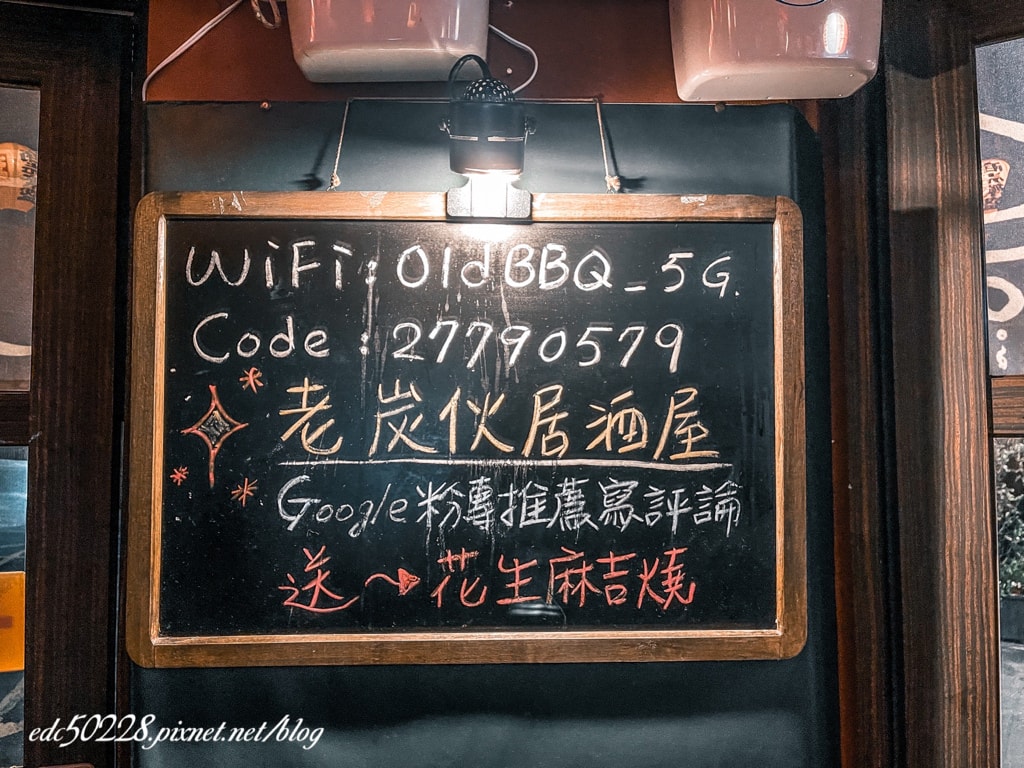 WiFi : OldBBQ_5G.
Code : 27790579
老炭伙居酒屋
Google粉專推薦寫評論
送→花生麻吉燒
edc50228.pixnet.net/blog